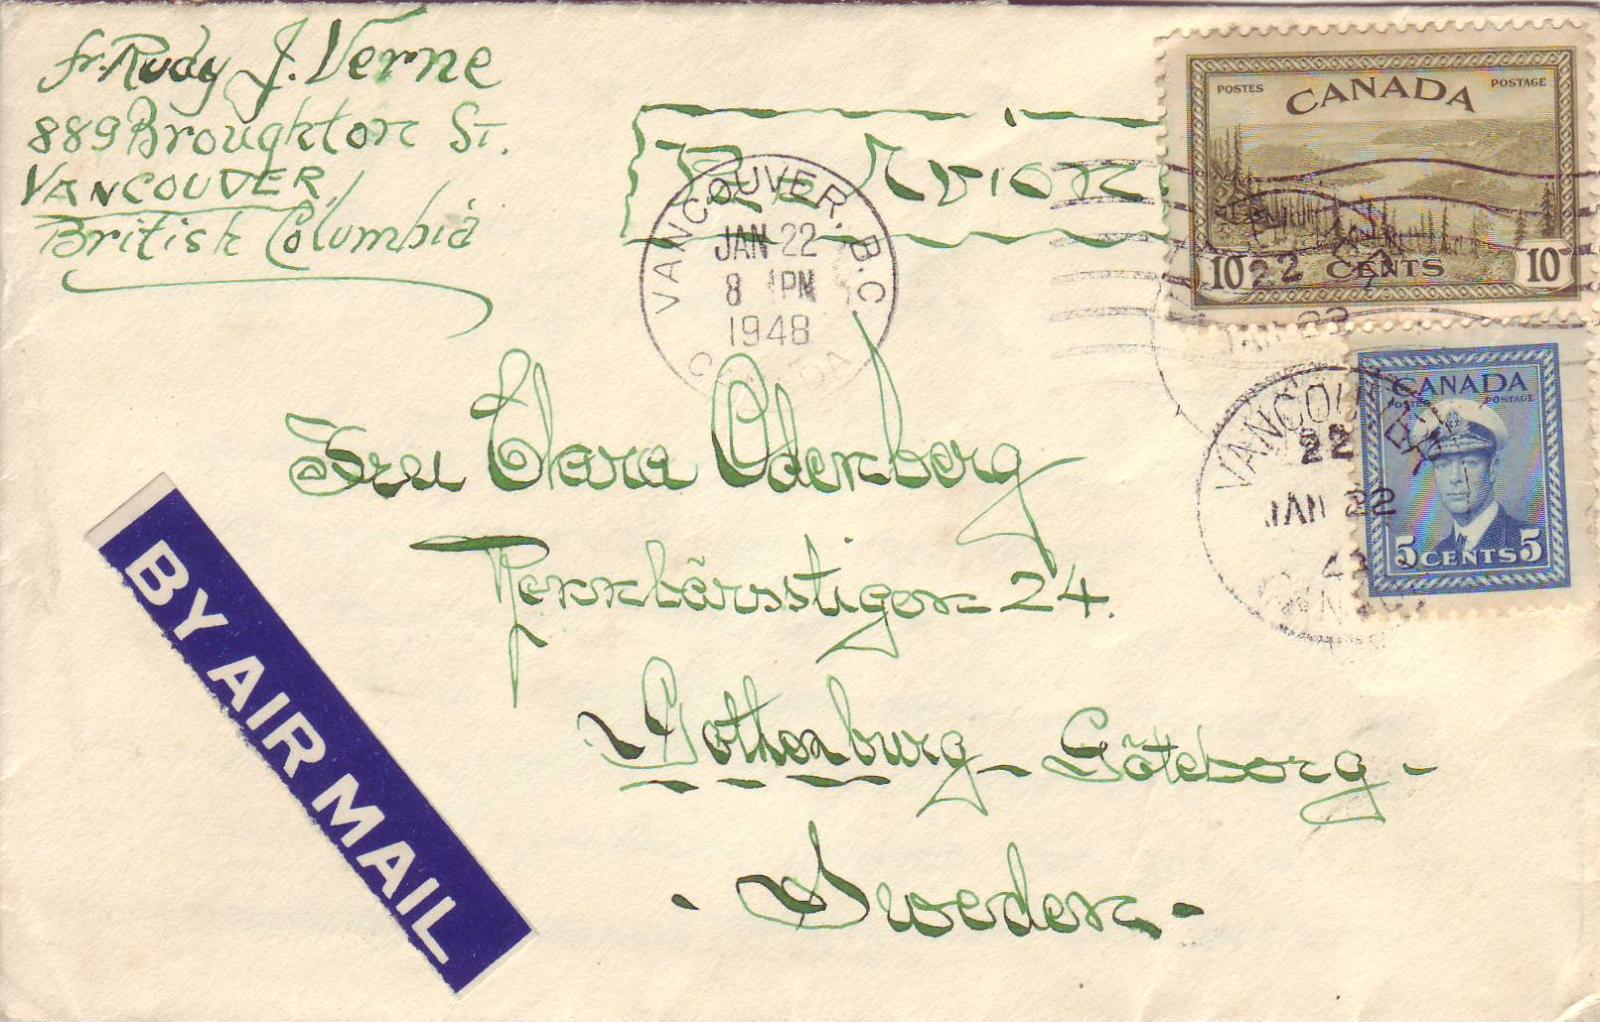 fr. Rudy J. Verne
889 Broughton St.
VANCOUVER,
British Columbia
Par Avion
VANCOUVER, B.C.
JAN 22
8 PM
1948
CANADA
POSTES CANADA POSTAGE
10 CENTS 10
CANADA
POSTES POSTAGE
5 CENTS 5
VANCOUVER
22
JAN 22
48
Fru Clara Odenberg
24.
Gothenburg - Göteborg -
- Sweden -
BY AIR MAIL